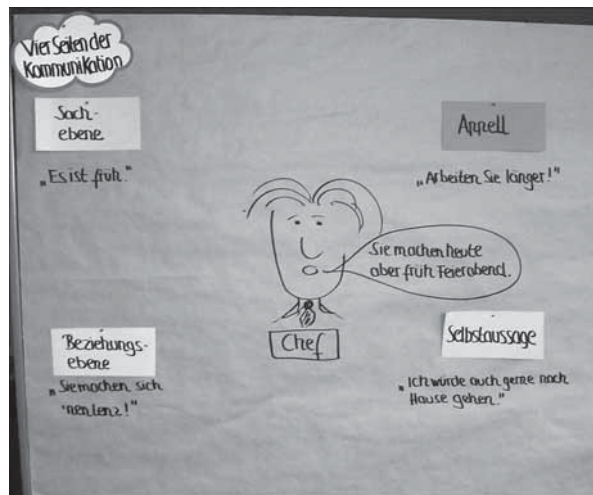 Vier Seiten der
Kommunikation
Sach-
ebene
„Es ist früh."
Appell
„Arbeiten Sie länger!"
Sie machen heute
aber früh Feierabend.
Chef
Beziehungs-
ebene
„Sie machen sich
'nen Lenz!"
Selbstaussage
„Ich würde auch gerne nach
Hause gehen."